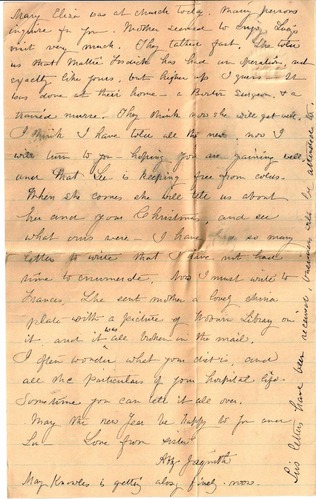 Mary Eliza was at church today. Many persons
inquire for you. Mother seemed to enjoy Lucy's
visit very much. They talked fast. She told
us that Mattie has had an operation, not
exactly like yours, but higher up I guess - It
was done at their home - a Boston Surgeon, & a
trained nurse. They think now she will get well.
I think I have told all the news, now I
will turn to you - hoping you are gaining well,
and that Lu is keeping free from colds.
When she comes she will tell us about
her and your Christmas, and see
what ours were - I have so many
letters to write that I have not had
time to enumerate. Now I must write to
Frances. She sent mother a lovely china
plate with a picture of Library on
it, and it was all broken in the mail.
I often wonder what your diet is, and
all the particulars of your hospital life.
Sometime you can tell it all over.
May the new Year be happy to you and
Lu - Love from sister
Abby
May Knowles is getting along finely now.
Lu's letters have been received, business will be attended to.